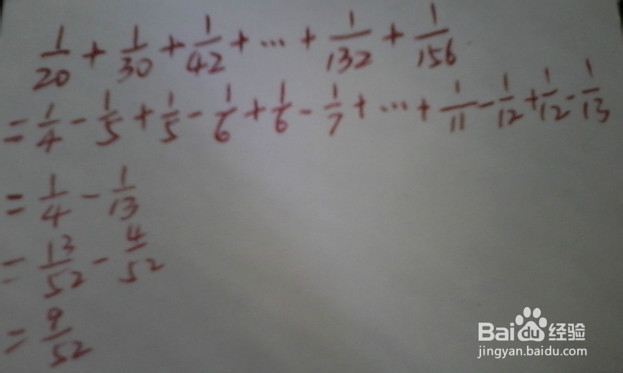 1/20 + 1/30 + 1/42 + ... + 1/132 + 1/156
= 1/4 - 1/5 + 1/5 - 1/6 + 1/6 - 1/7 + ... + 1/11 - 1/12 + 1/12 - 1/13
= 1/4 - 1/13
= 13/52 - 4/52
= 9/52
Bai du 经验
jingyan.baidu.com